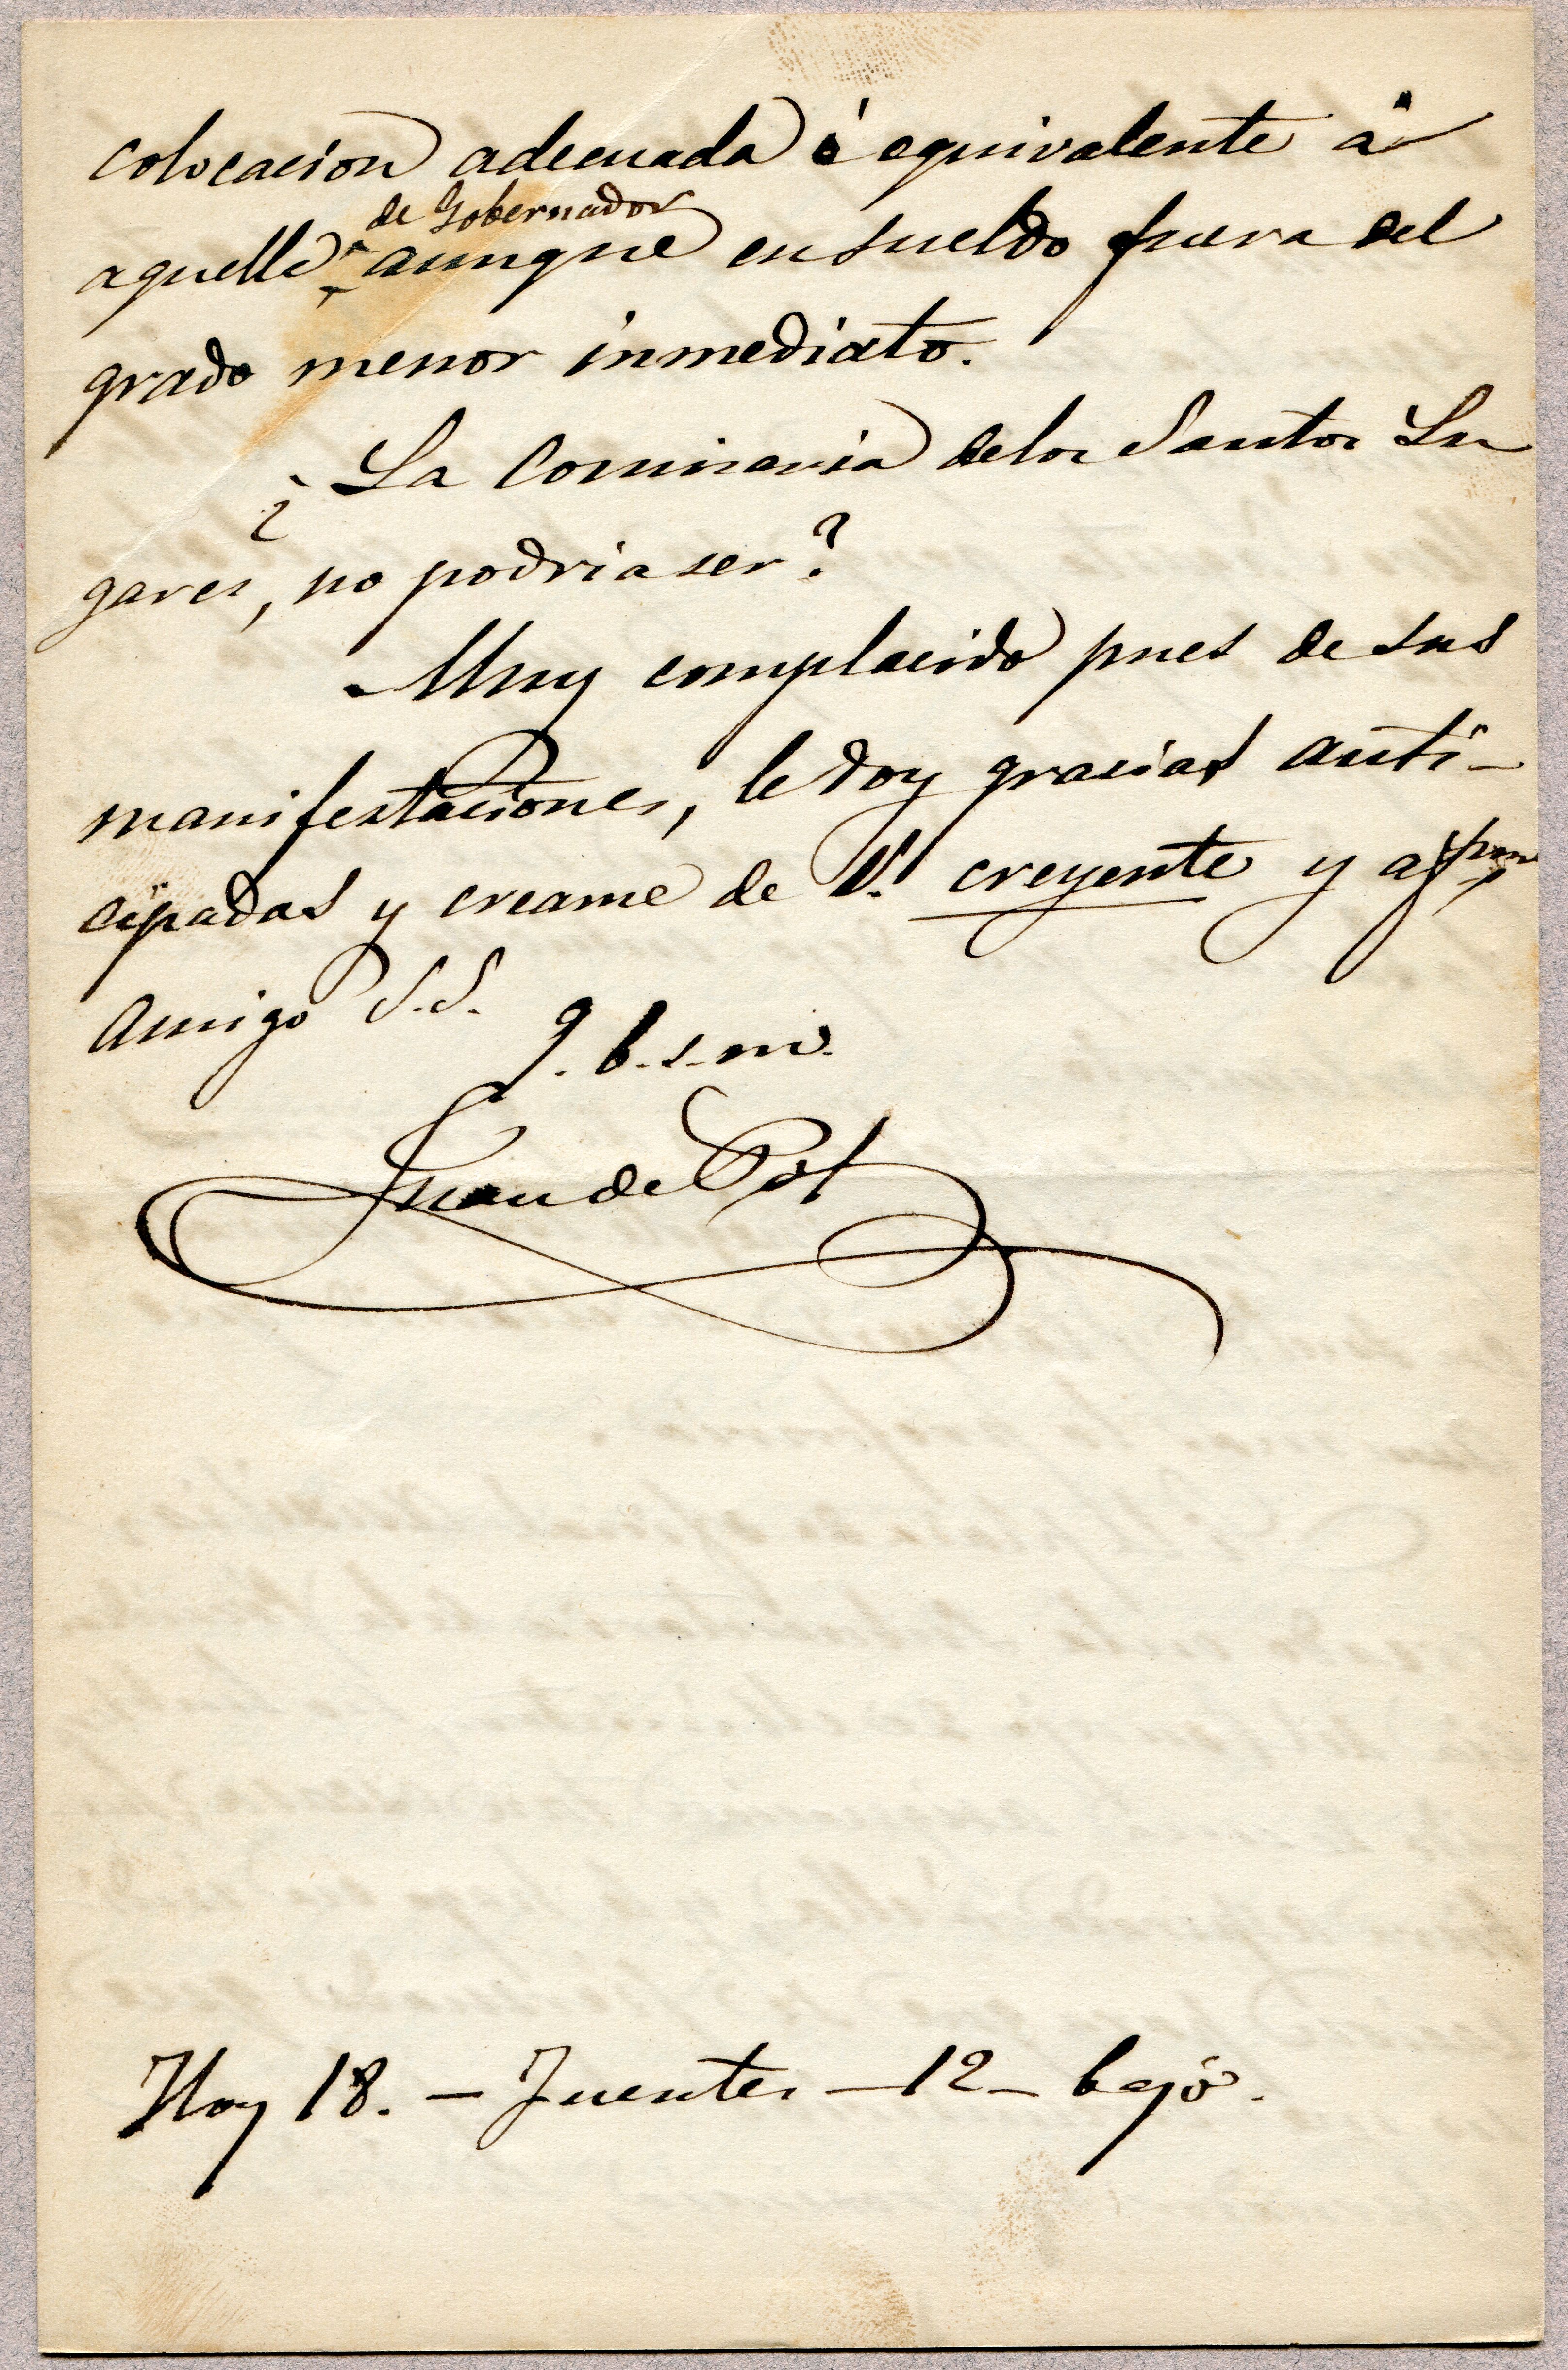 colocacion adecuada ó equivalente á
de Gobernador
aquella aunque en sueldo fuera del
grado menor inmediato.
¿La Comisaria delos Santos Lu
gares, no podria ser?
Muy complacido pues de sus
manifestaciones, le doy gracias anti-
cipadas y creame de V. creyente y affmo
Amigo S.S.
q. b. s. m.
Juan de Pol
Hoy 18. - Fuentes - 12 - bajo.